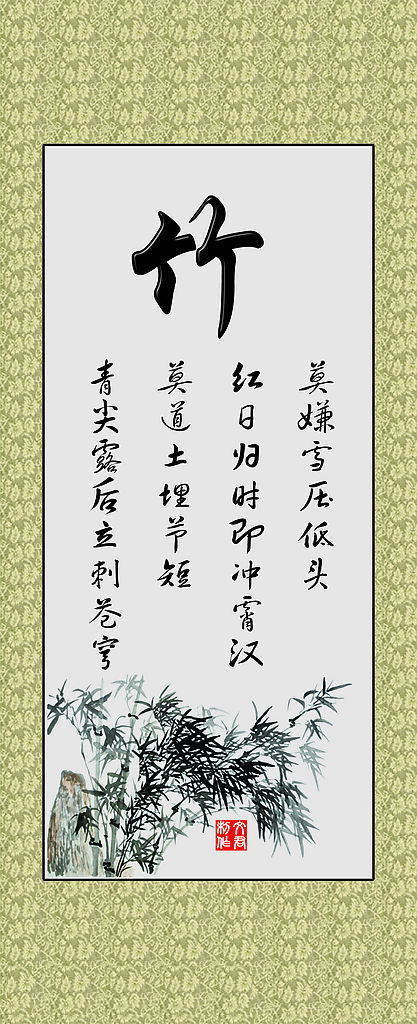 竹
莫嫌雪压低头
红日归时即冲霄汉
莫道土埋节短
青尖露后立刺苍穹
文君
制作